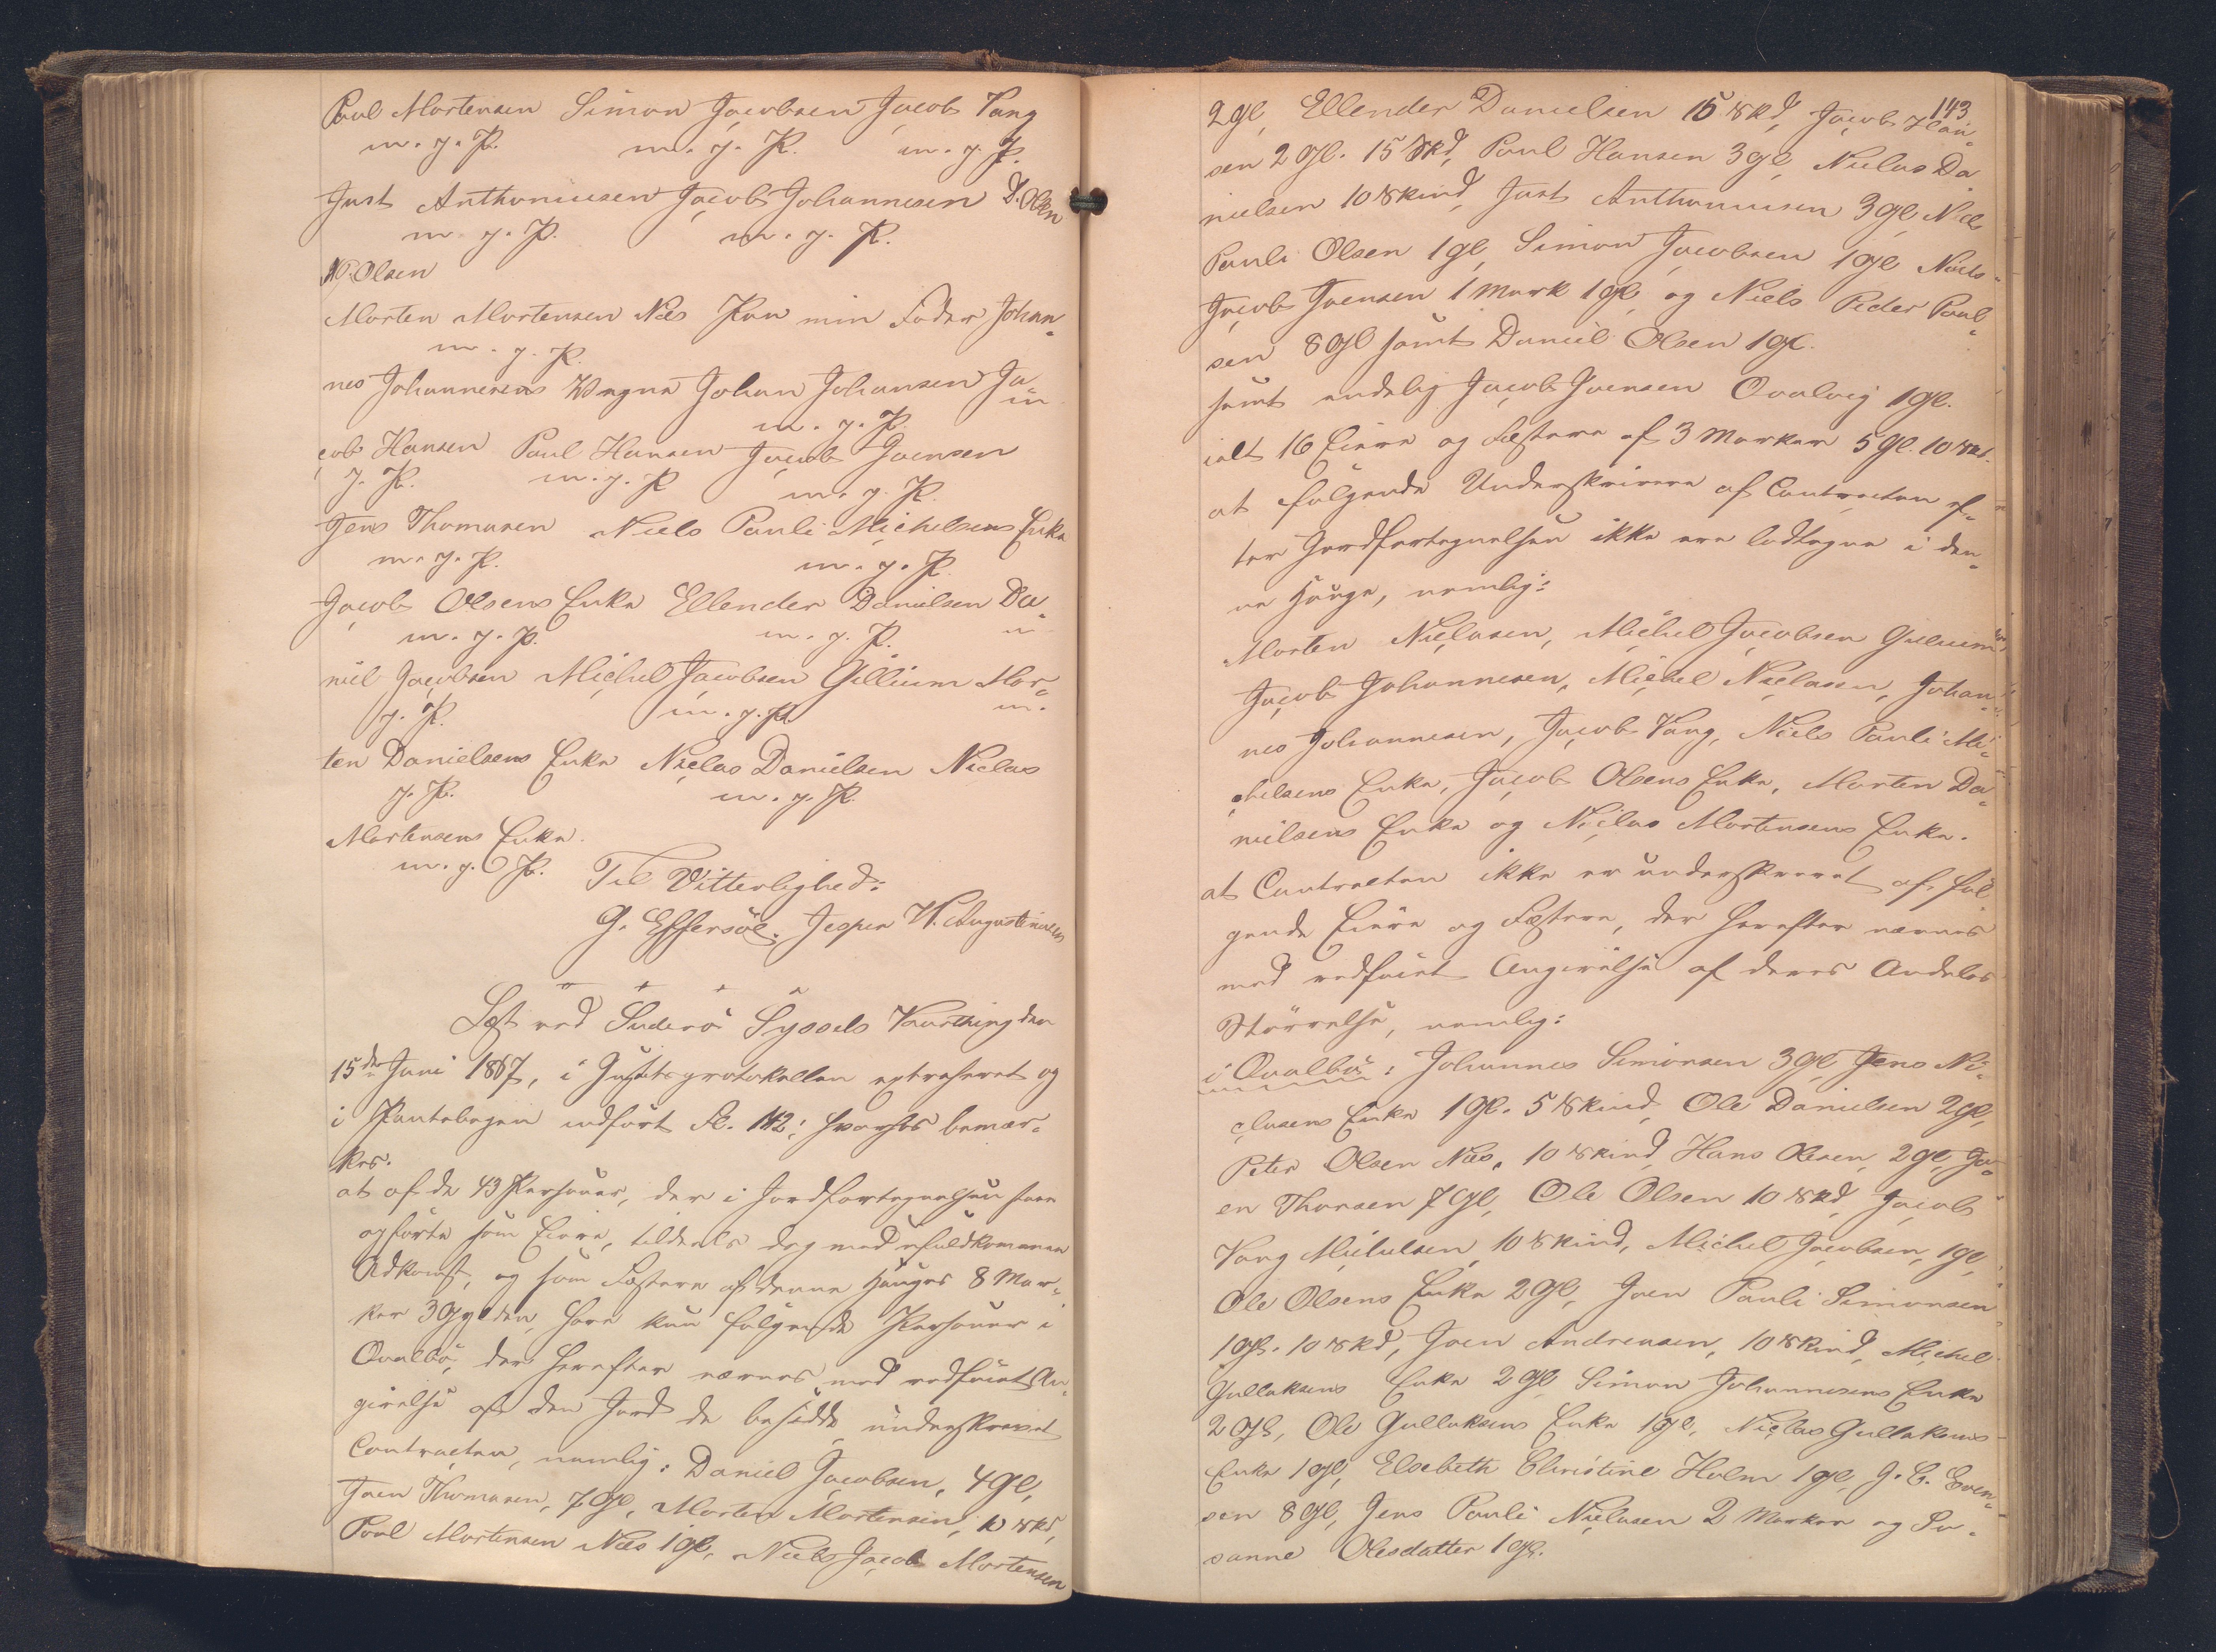 Poul Mortensen Simon Jacobsen Jacob Vang
m. f. P. m. f. P. m. f. P.
Just Anthoniusen Jacob Johannesen D. Olsen
m. f. P. m. f. P.
N P. Olsen
Morten Mortensen Næs Paa min Fader Johan-
m. f. P.
nes Johannesens Vegne Johan Johansen Ja-
m. f. P. m
cob Hansen Poul Hansen Jacob Joensen
f. P. m. f. P m. f. P.
Jens Thomasen Niels Pauli Michelsens Enke
m. f. P. m. f. P.
Jacob Olsens Enke Ellender Danielsen Da-
m. f. P. m. f. P. m
niel Jacobsen Michel Jacobsen Gillium Mor-
f. P. m. f. P. m.
ten Danielsens Enke Niclas Danielsen Niclas
f. P. m. f. P.
Mortensens Enke.
m. f. P. Til Vitterlighed:
G. Effersöe. Jesper W. Augustinussen
Læst ved Suderö Syssels Vaarthing den
15de Juni 1867, i Justitsprotokollen extraheret og
i Pantebogen indfört Fol. 142; hvorhos bemær-
kes.
at af de 43 Personer, der i Jordfortegnelsen staae
opförte som Eiere, tildeels dog med ufuldkommen
Adkomst, og som Fæstere af denne Hauges 8 Mar-
ker 3 Gylden, have kun fölgende Personer i
Qvalbö, der herefter nævnes med vedföiet An-
givelse af den Jord de besidde underskrevet
Contracten, nemlig: Daniel Jacobsen, 4 Gl,
Joen Thomasen, 7 Gl, Morten Mortensen, 10 Skd,
Poul Mortensen Næs 1 Gl, Niels Jacob Mortensen
143
2 Gl, Ellender Danielsen 15 Skd, Jacob Han
sen 2 Gl. 15 Skd, Poul Hansen 3 Gl, Niclas Da
nielsen 10 Skind, Just Anthoniusen 3 Gl, Niels
Pauli Olsen 1 Gl, Simon Jacobsen 1 Gl Niels
Jacob Joensen 1 Mark 1 Gl, og Niels Peder Poul-
sen 8 Gl samt Daniel Olsen 1 Gl.
samt endelig Jacob Joensen Qvalvig 1 Gl.
ialt 16 Eiere og Fæstere af 3 Marker 5 Gl. 10 Skd.
at fölgende Underskrivere af Contracten ef-
ter Jordfortegnelsen ikke ere lodtagne i den-
ne Hauge, nemlig:
Morten Niclasen, Michel Jacobsen Gillium
Jacob Johannesen, Michel Niclasen, Johan-
nes Johannesen, Jacob Vang, Niels Pauli Mi-
chelsens Enke, Jacob Olsens Enke, Morten Da-
nielsens Enke og Niclas Mortensens Enke.
at Contracten ikke er underskrevet af föl
gende Eiere og Fæstere, der herefter nævnes
med vedföiet Angivelse af deres Andeles
Störrelse, nemlig:
i Qvalbö: Johannes Simonsen 3 Gl, Jens Ni-
clasens Enke 1 Gl. 5 Skind, Ole Danielsen 2 Gl,
Peter Olsen Næs, 10 Skind, Hans Olesen, 2 Gl, Jo-
en Thorsen 7 Gl, Ole Olsen 10 Skd, Jacob
Vang Michelsen, 10 Skind, Michel Jacobsen, 1 Gl,
Ole Olsens Enke 2 Gl, Joen Pauli Simonsen
1 Gl. 10 Skd, Joen Andreasen, 10 Skind, Michel
Gullaksens Enke 2 Gl, Simon Johannesens Enke
2 Gl, Ole Gullaksens Enke 1 Gl, Niclas Gullaksens
Enke 1 Gl, Elsebeth Christine Holm 1 Gl, J. E. Even-
sen 8 Gl, Jens Pauli Niclasen 2 Marker og Su-
sanne Olesdatter 1 Gl.